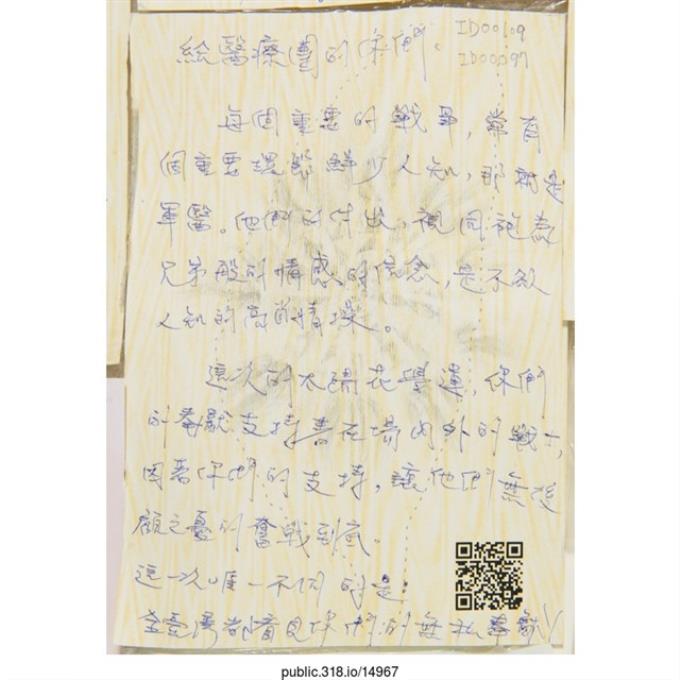 給醫療團的你們。
ID00109
ID00097
每個重要的戰爭,常有
個重要環節鮮少人知,那就是
軍醫。他們的付出,視同袍為
兄弟般的情感的信念,是不欲
人知的高尚情操。
這次的太陽花學運,你們
的奉獻支持著在場內外的戰士,
因著你們的支持,讓他們無後
顧之憂的奮戰到底。
這一次唯一不同的是
全臺灣都看見你們的無私奉獻
public.318.io/14967